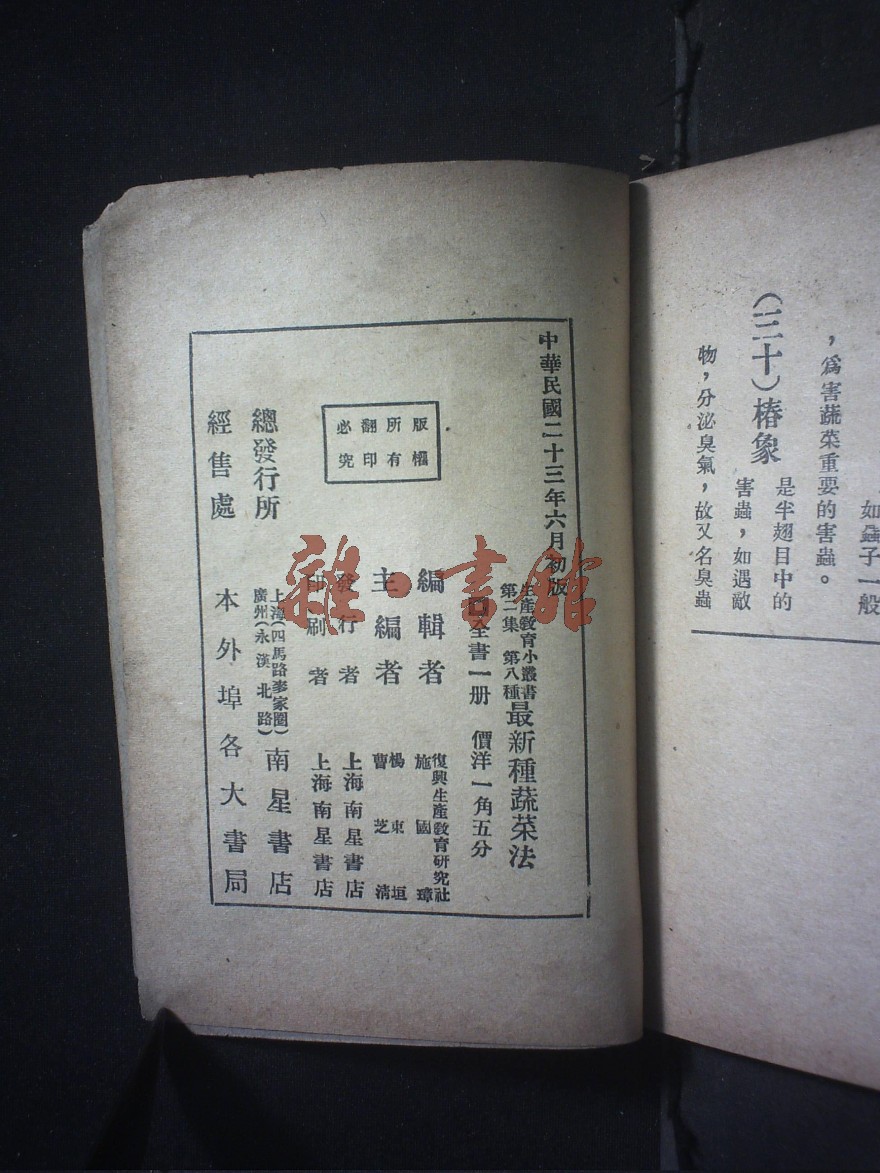 如蟲子一般
，爲害蔬菜重要的害蟲。
（三十）椿象
是半翅目中的
害蟲，如遇敵
物，分泌臭氣，故又名臭蟲
中華民國二十三年六月初版
生產教育小叢書
第二集 第八種
最新種蔬菜法
全書一册 價洋一角五分
版權
所有
翻印
必究
編輯者
復興生產教育研究社
施國璋
主編者
楊東垣
曹芝清
發行者 上海南星書店
印刷者 上海南星書店
總發行所
上海（四馬路麥家圈）
廣州（永漢北路）
南星書店
經售處 本外埠各大書局
雜·書館